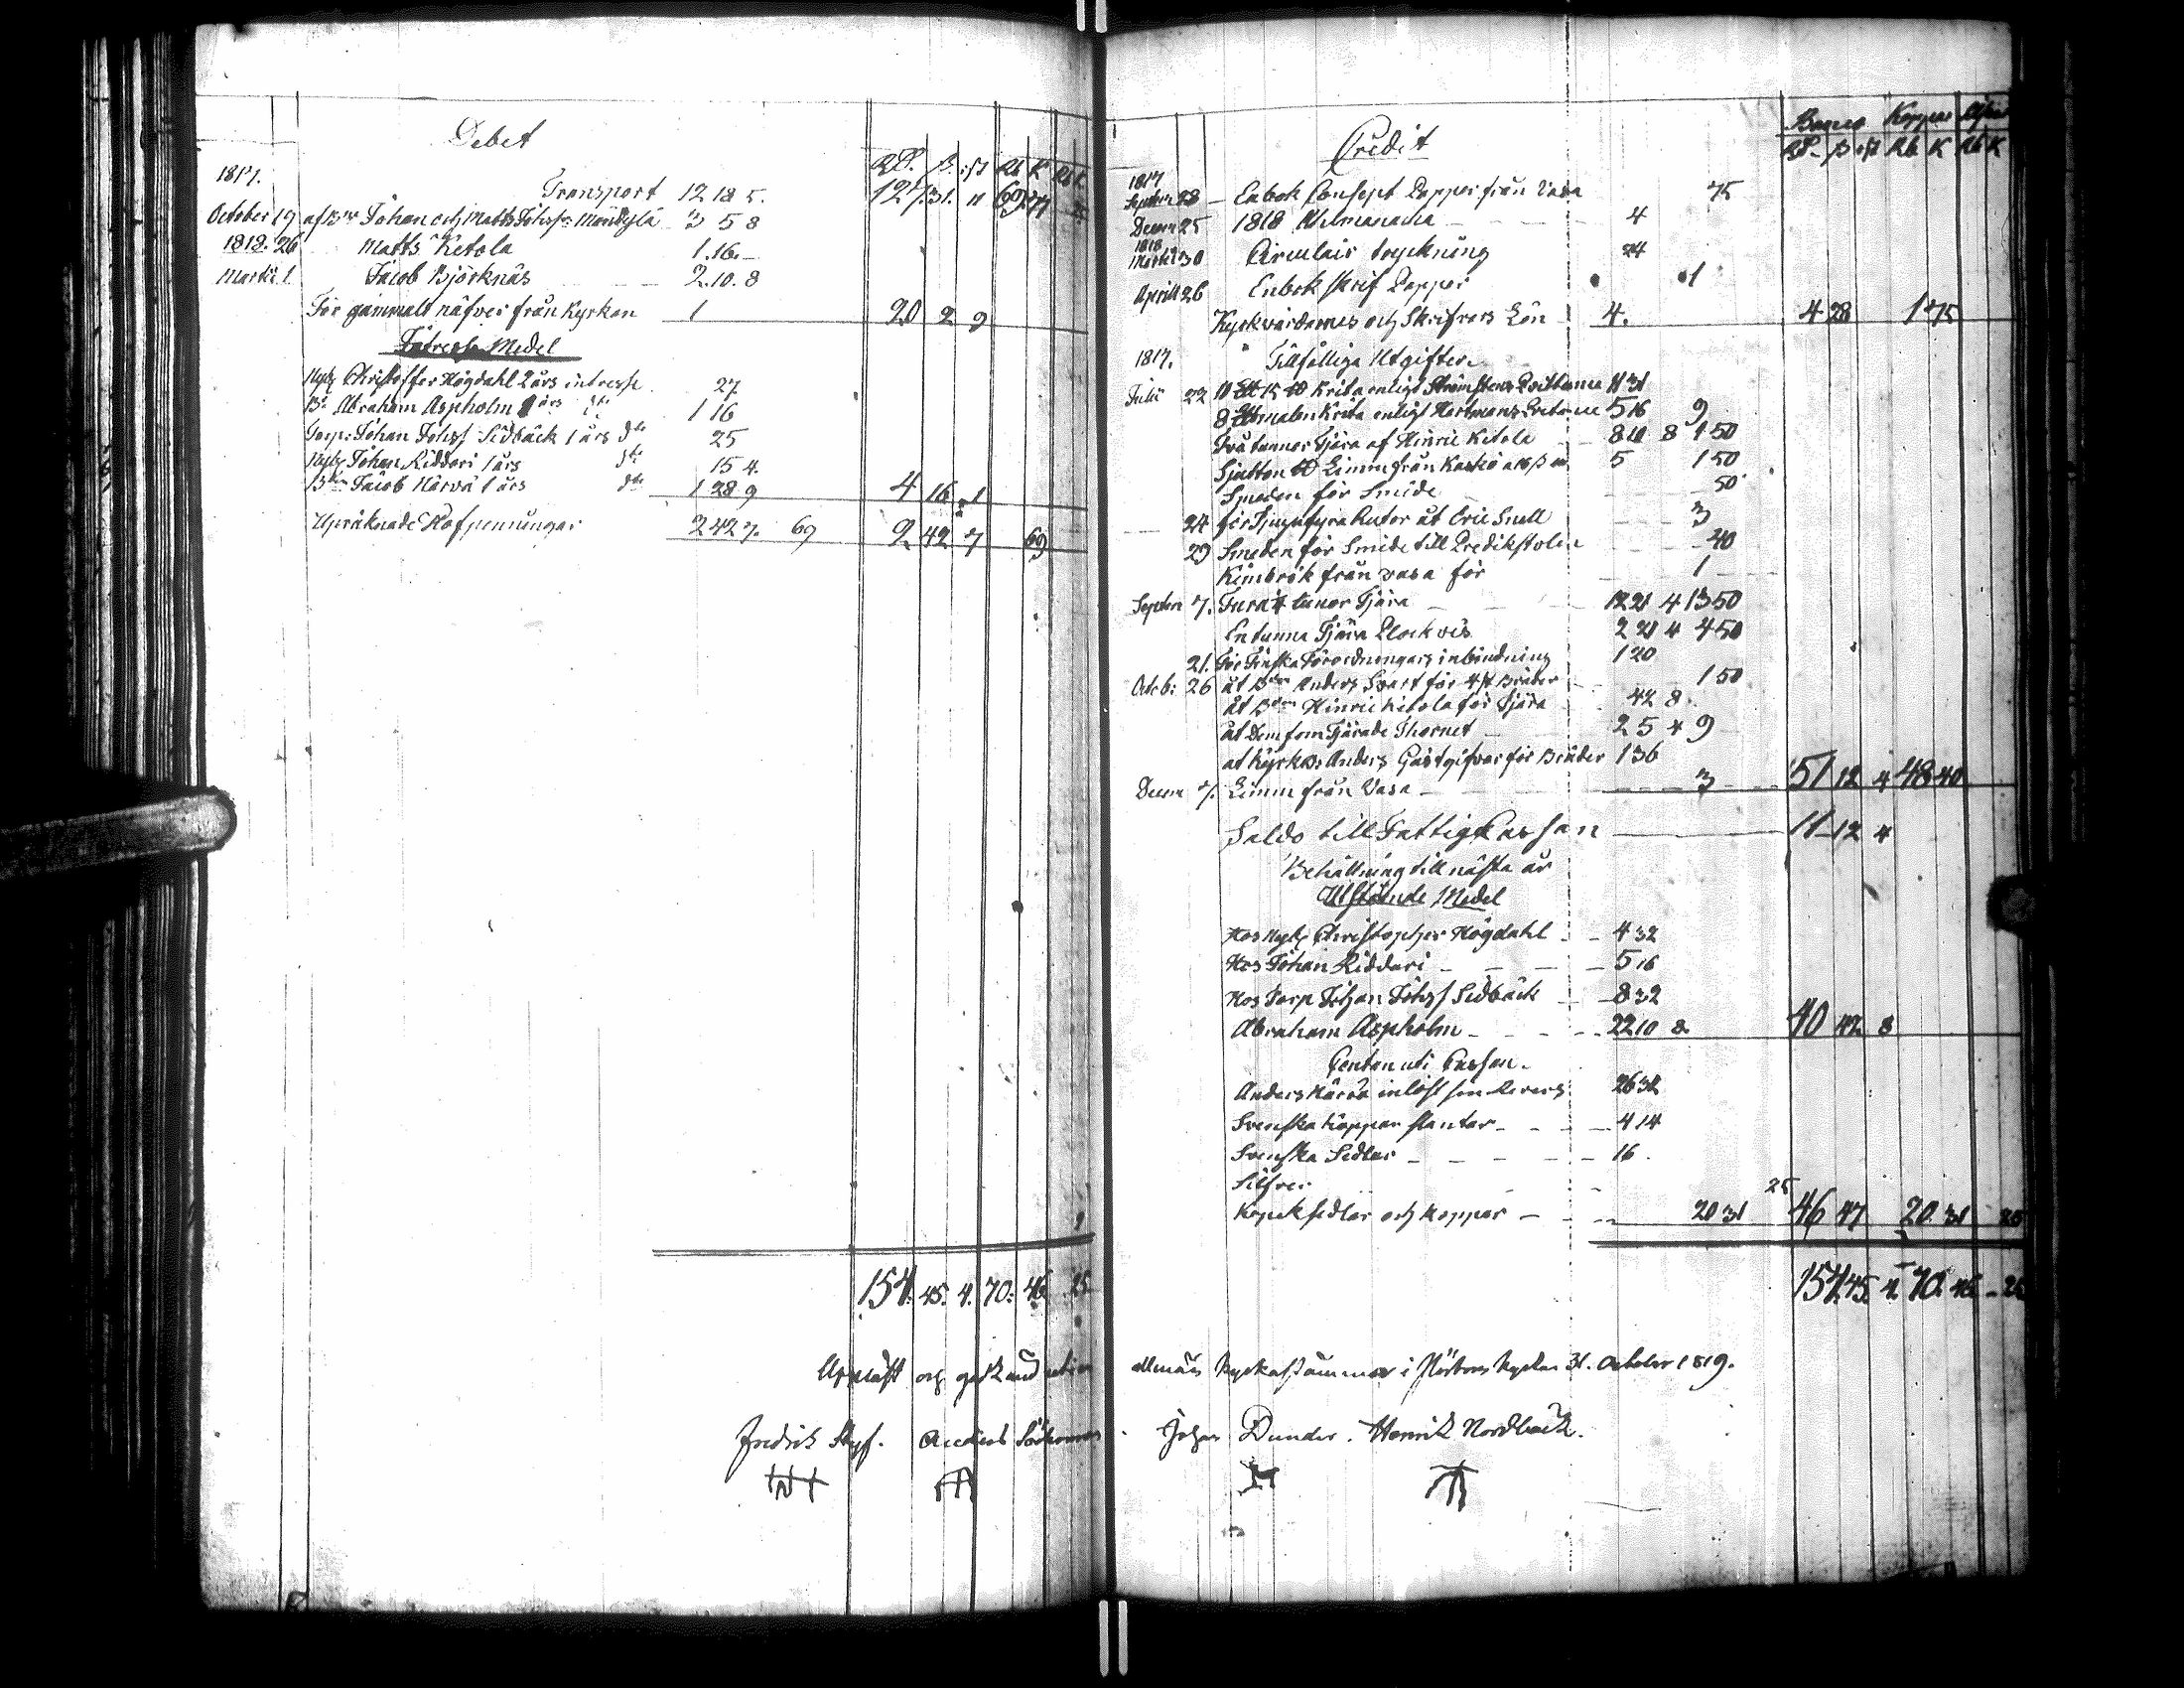 Debet
Rd. ß. rst Rb K Rb K
1817.
Transport 12 18 5. 127. 31. 11 69 77 25
October 19 af Bdn Johan och Matts Johss: Mändylä 3 5 8
1818. 26 Matts Ketola 1. 16. –
Martii 1 Jacob Björknäs 2. 10. 8
För gammalt näfver från Kyrkan 1 20 2 9
Intresse Medel
Christoffer Högdahl 2 års intresse 27
Bd Abraham Aspholm 1 års dto 1 16
Torp: Johan Johss Sidbäck 1 års dto 25
Johan Riddari 1 års dto 15 4.
Bdn Jacob Härvä 1 års dto 1 28 9 4 16 1
Upräknade Håfpenningar 2 42 7. 69 2 42 7 69
154. 45. 4. 70: 46 25
Credit
Banco Koppar
Rd – ß rst Rb K Rb K
1817
Septem 28 – En bok Consept Papper från Vasa 75
Decem 25 1818 Allmanacka 4
1818
Martii 30 Circulair tryckning 24
Aprill 26 En bok skrif Papper 1
Kyrkvärdarnes och Skrifvars Lön 4. 4 28 1 75
1817. Tillfälliga Utgifter.
Julii 22 Krita enligt Quittance 11 31
8 malen Krita enligt Hartmans 5 16 9
Två tunnor Tjära af Hinric Ketola 8 10 8 1 50
Sjutton Limm från 5 1 50
Smeden för Smide 50
24 för Tjugufyra Rutor åt Eric Snell 3
29 Smeden för Smide till Predikstolen 40
Kimbrök från Vasa för 1
Septem 7. Fura 4 tunor Tjära 12 21 4 13 50
En tunna Tjära Plockvis 2 21 4 4 50
21. För Finska Förordningars inbindning 1 20
Octob: 26 åt Bdn Anders Svart för Bräder 1 50
åt Bdn Hinric Ketola för Tjära 42 8.
åt Dem som Tjärade Thornet 2 5 4 9
at Kyrkv: Anders Gästgifvar för Bräder 1 36
Decem 7. Limm från Vasa 3 51 12 4 48 40
Saldo till Fattig Cassan 11 12 4
Behållning till nästa år
Utstående Medel
Hos Christopher Högdahl 4 32
Hos Johan Riddari 5 16
Hos Torp Johan Johss Sidbäck 8 32
Abraham Aspholm 22 10 8 40 42 8
Contan uti Cassan.
Anders Härvä inlöst sin Revers 26 32
Svenska Koppar slantar 4 14
Svenska Sedlar 16.
Silfver 25
Kopeksedlar och Koppar 20 31 46 47 20. 31 25
154. 45. 4. 70. 46 – 25
Uppläst och godkänd uti allmän Kyrkostämma i Kyrka 31. October 1819.
Fredrik Anders Johan Dunder. Henrik Nordbäck.